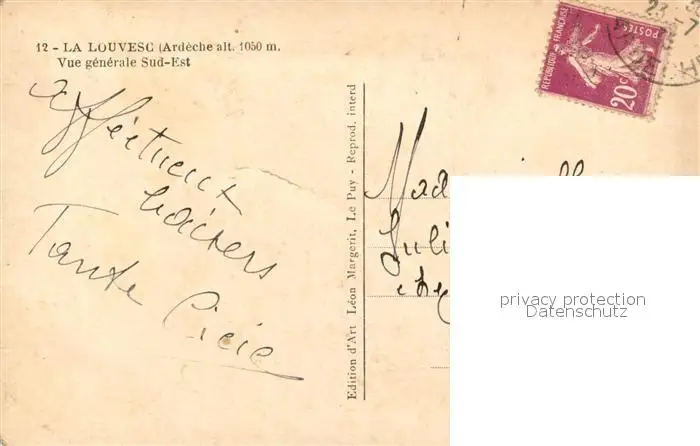 12 - LA LOUVESC (Ardèche alt. 1050 m.
Vue générale Sud-Est
affectment
baisers
Tante Cicie
Edition d'Art Léon Margerit, Le Puy - Reprod. interd
REPUBLIQUE FRANÇAISE
POSTES
20c
23
7
Mad
Juli
chez
privacy protection
Datenschutz